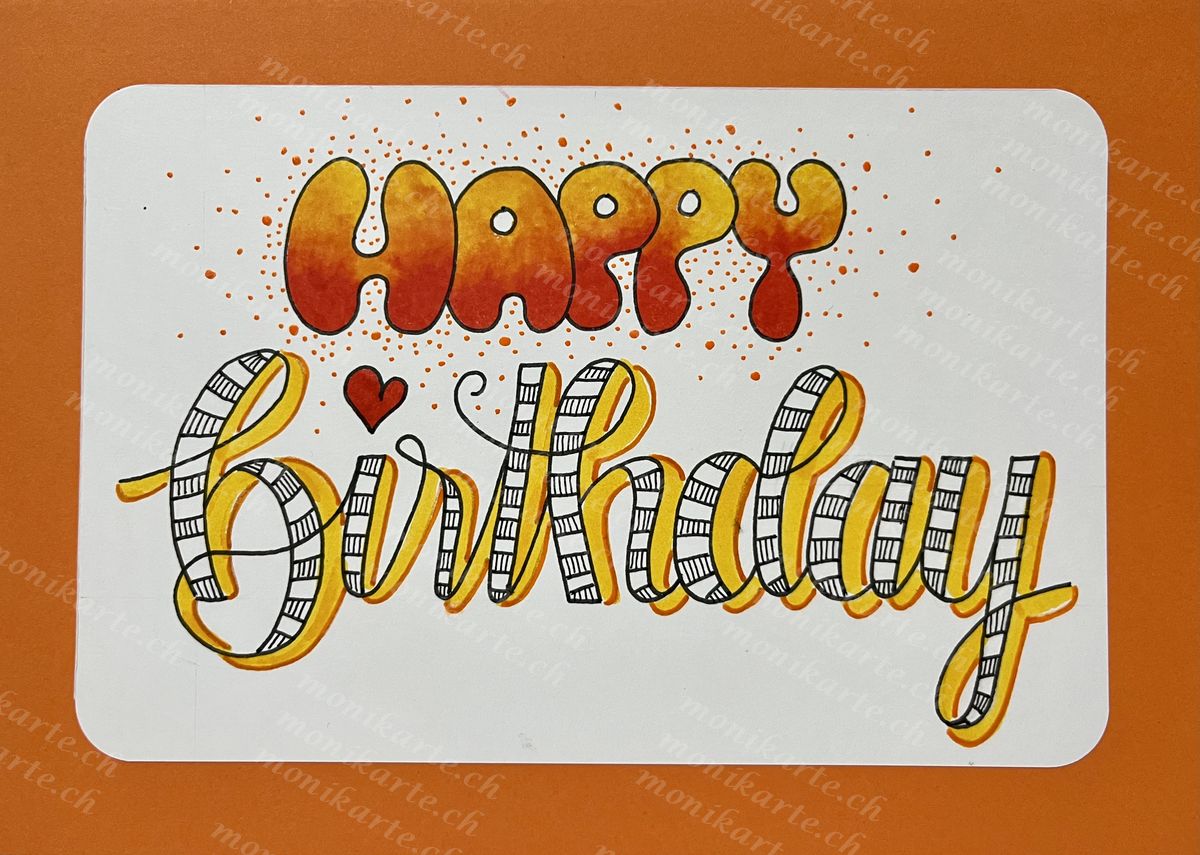 HAPPY
birthday
monikarte.ch